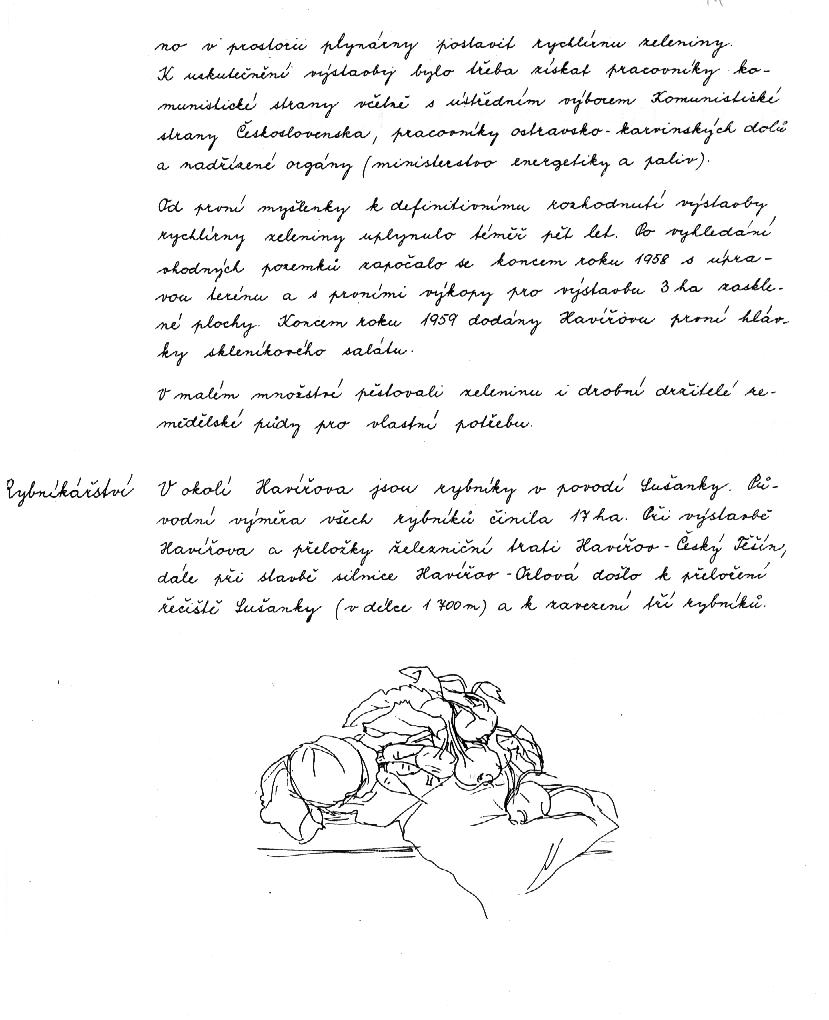 no v prostoru plynárny postavit rychlírnu zeleniny.
K uskutečnění výstavby bylo třeba získat pracovníky ko-
munistické strany včetně s ústředním výborem Komunistické
strany Československa, pracovníky ostravsko-karvinských dolů
a nadřízené orgány (ministerstvo energetiky a paliv).
Od první myšlenky k definitivnímu rozhodnutí výstavby
rychlírny zeleniny uplynulo téměř pět let. Po vyhledání
vhodných pozemků započalo se koncem roku 1958 s úpra-
vou terénu a s prvními výkopy pro výstavbu 3 ha zaskle-
né plochy. Koncem roku 1959 dodány Havířovu první hláv-
ky skleníkového salátu.
V malém množství pěstovali zeleninu i drobní držitelé ze-
mědělské půdy pro vlastní potřebu.
Rybníkářství V okolí Havířova jsou rybníky v povodí Sušanky. Pů-
vodní výměra všech rybníků činila 17 ha. Při výstavbě
Havířova a přeložky železniční trati Havířov - Český Těšín,
dále při stavbě silnice Havířov - Orlová došlo k přeložení
řečiště Sušanky (v délce 1 700 m) a k zavezení tří rybníků.